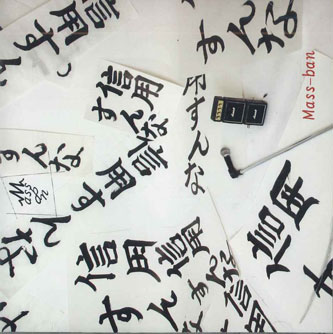 信用す
すんな
Mass-ban
信用
すんな
すんな
信用す
んな
信用
信用
すん
すんな
信用
信用